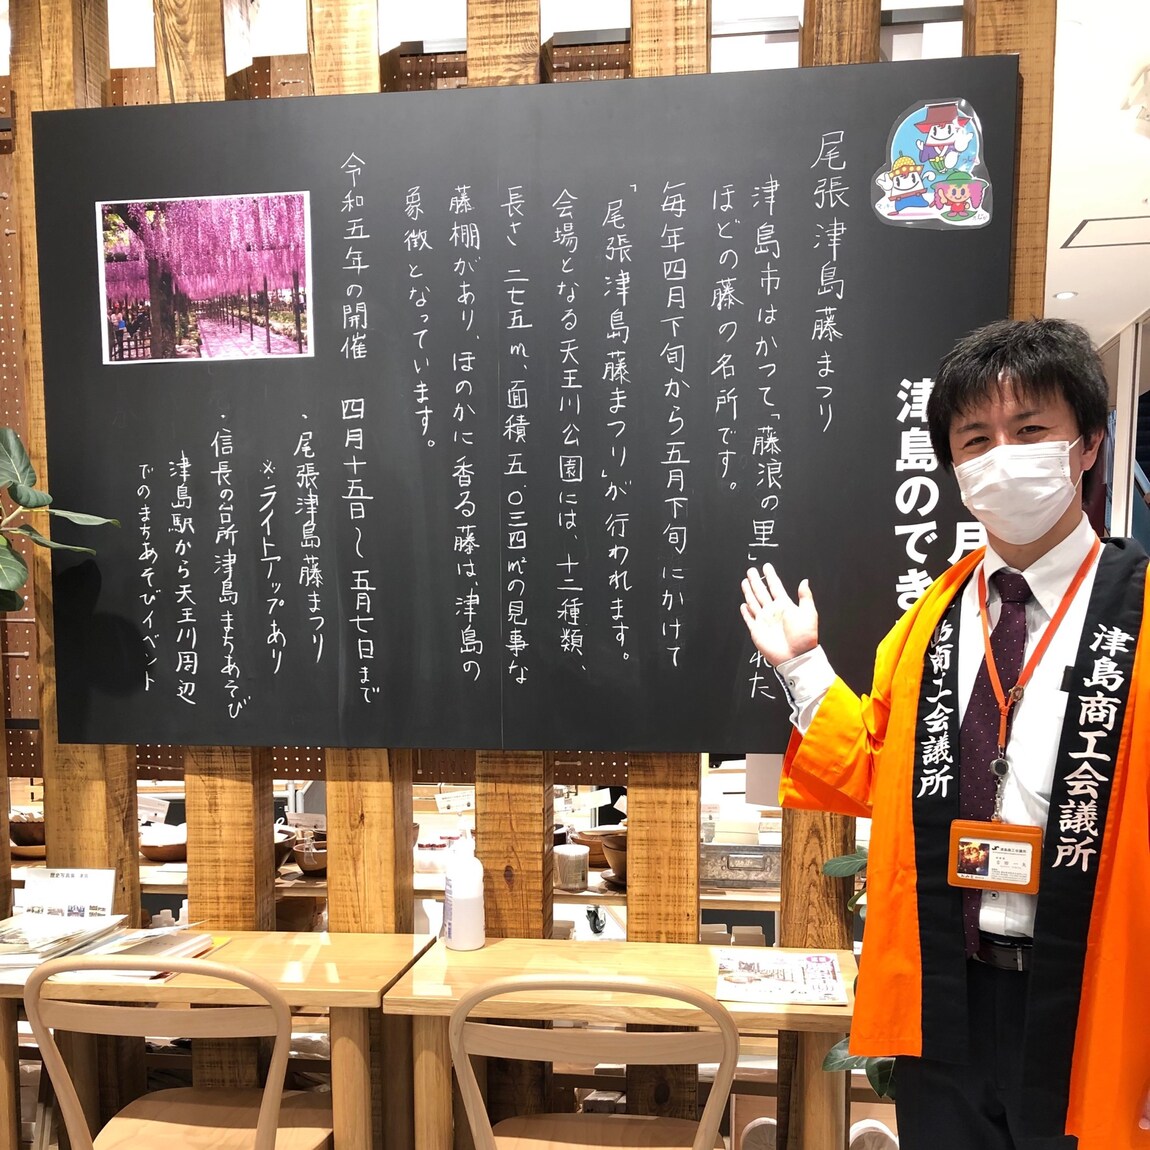 月
津島のでき
尾張津島藤まつり
津島市はかつて「藤浪の里」
れた
ほどの藤の名所です。
毎年四月下旬から五月下旬にかけて
「尾張津島藤まつり」が行われます。
会場となる天王川公園には、十二種類、
長さ二七五m、面積五、〇三四㎡の見事な
藤棚があり、ほのかに香る藤は、津島の
象徴となっています。
令和五年の開催 四月十五日〜五月七日まで
・尾張津島藤まつり
※ライトアップあり
・信長の台所津島まちあそび
津島駅から天王川周辺
でのまちあそびイベント
津島商工会議所
商工会議所